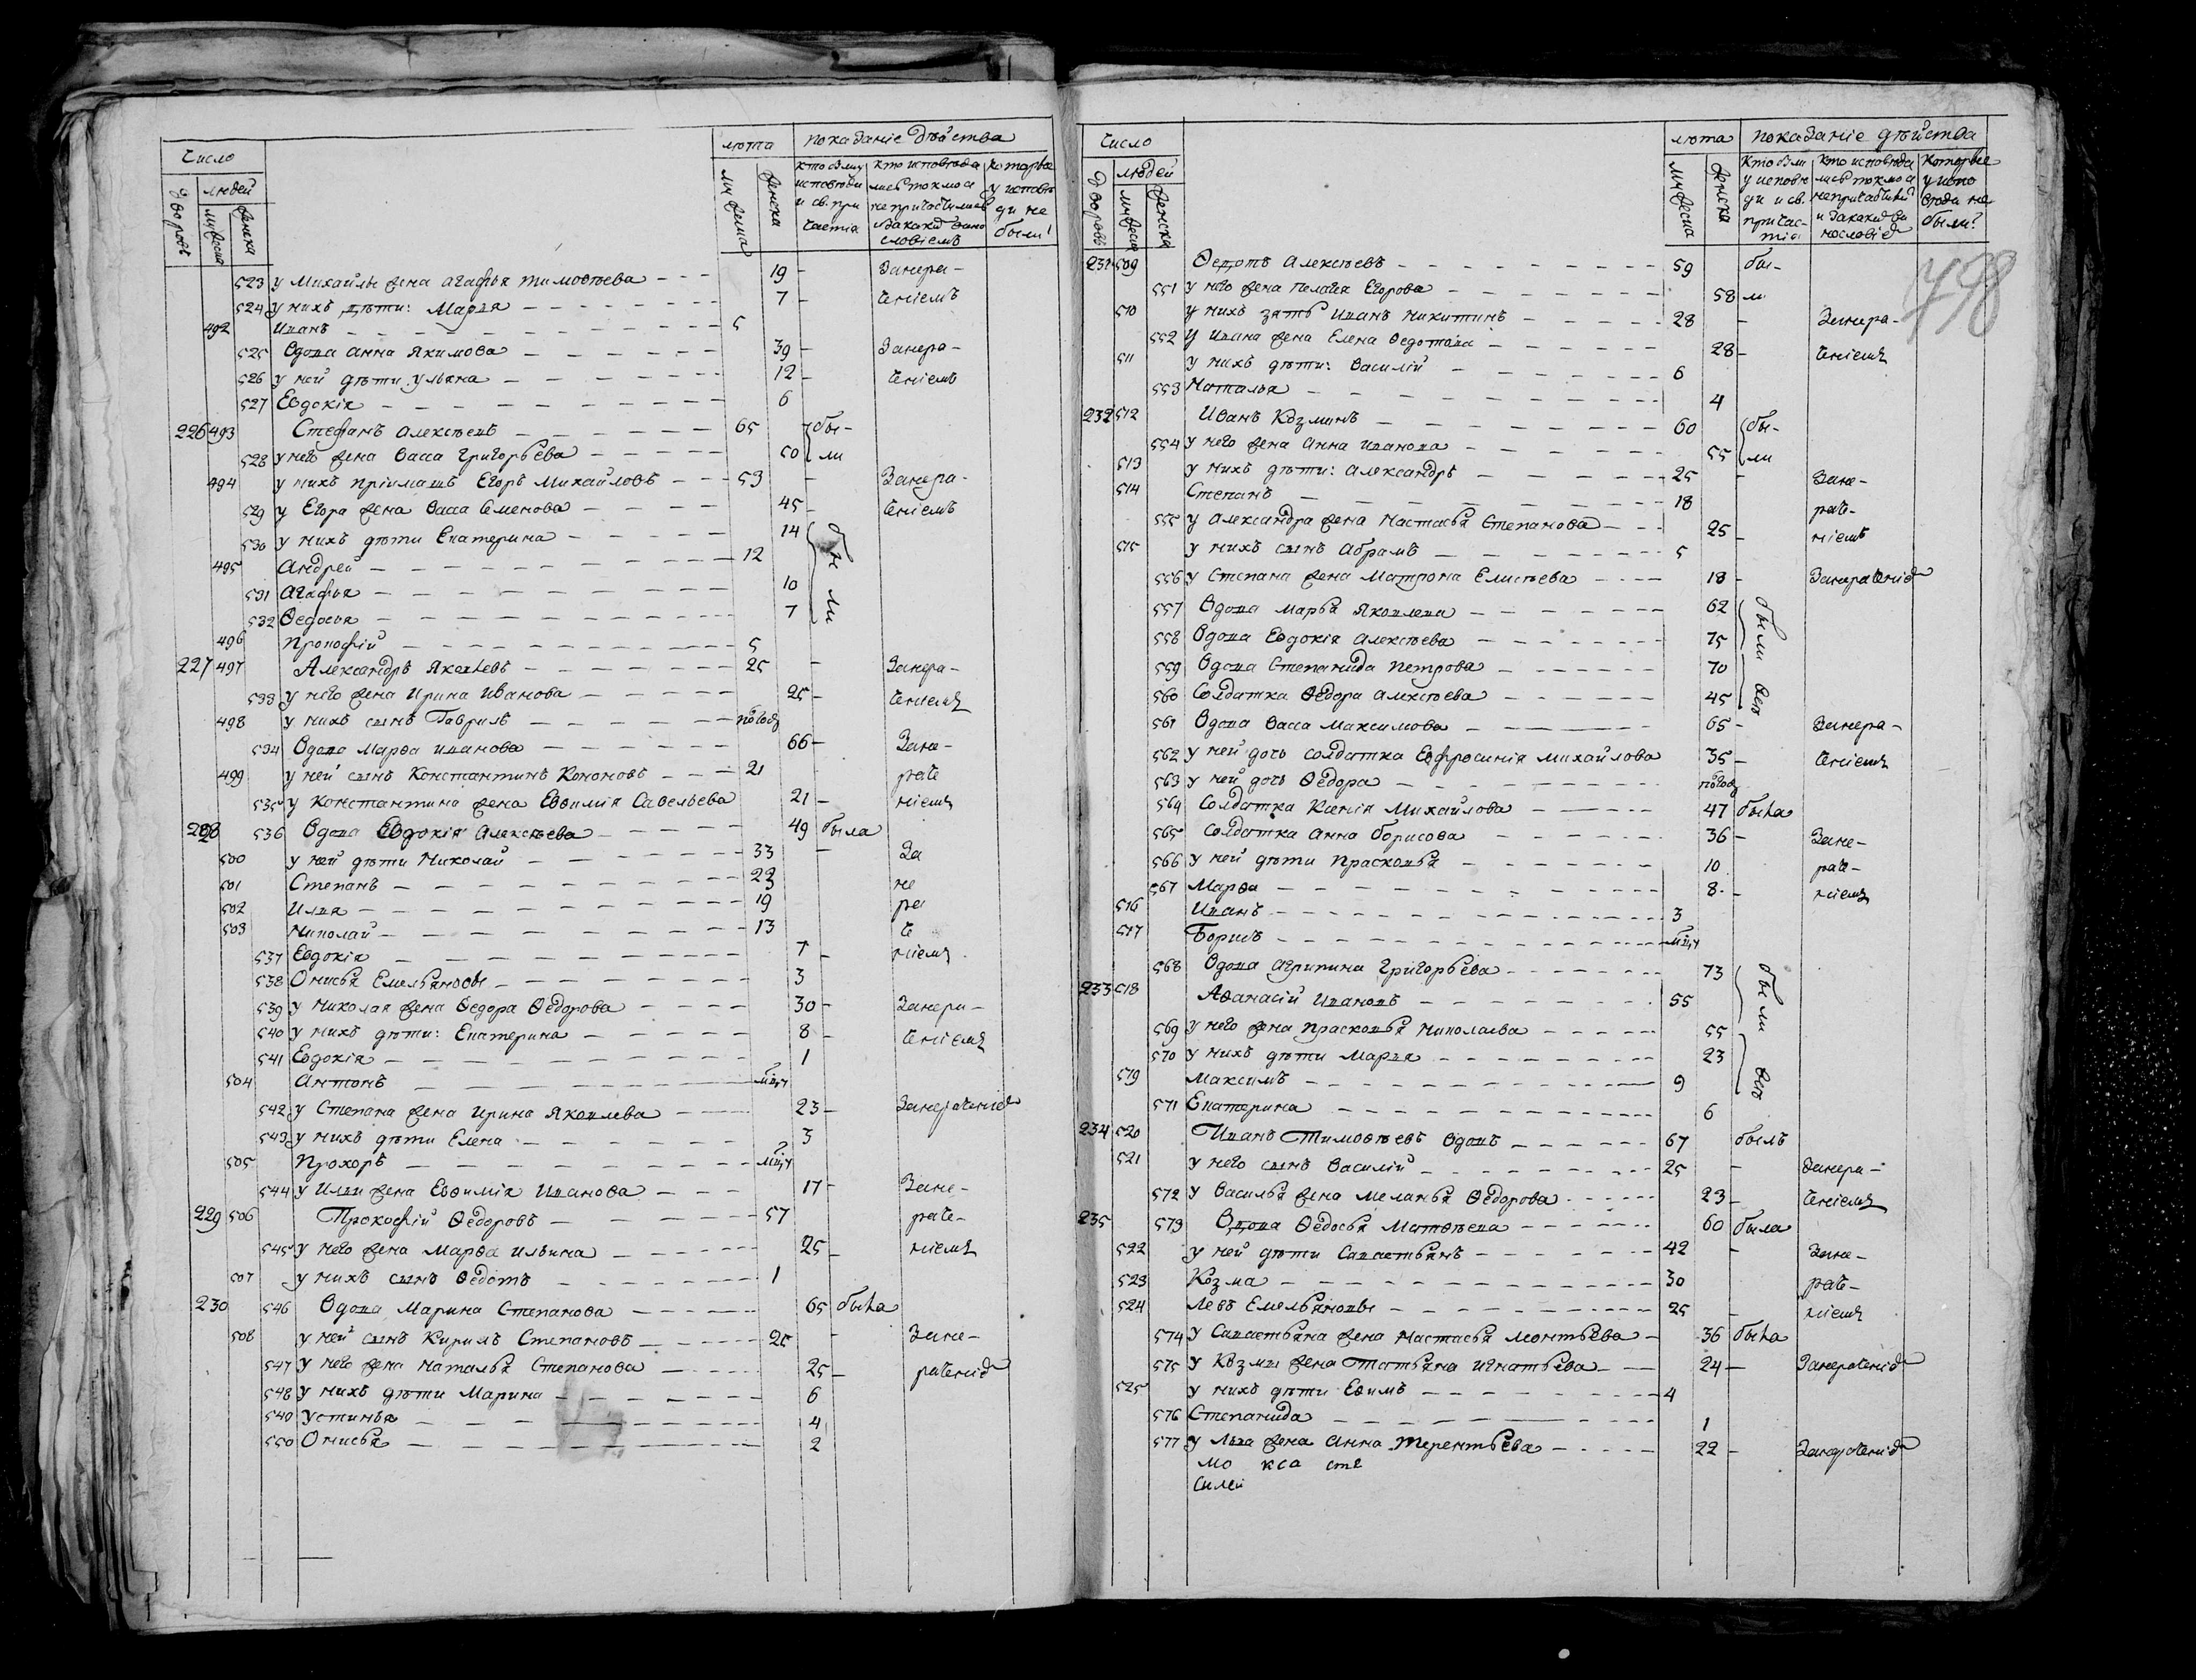 Число
лѣта показаніе дѣйства
дворовъ людей мужеска женска
мужеска женска кто были у исповѣди и св. причастія кто исповѣдались токмо а не причастились и за какимъ винословіемъ которые у исповѣди не были?
523 у Михайлы жена Агафья Тимоѳѣева 19 - Занера-
524 у нихъ дѣти: Марья 7 - ченіемъ
492 Иванъ 5
525 Вдова Анна Якимова 39 - Занера-
526 у ней дѣти Ульяна 12 - ченіемъ
527 Евдокія 6
226 493 Стефанъ Алексѣевъ 65 бы-
528 у него жена Васса Григорьева 50 ли
494 у нихъ пріимашъ Егоръ Михайловъ 53 - Занера-
529 у Егора жена Васса Семенова 45 - ченіемъ
530 у нихъ дѣти Екатерина 14 бы
495 Андрей 12
531 Агафья 10 ли
532 Ѳедосья 7
496 Прокофій 5
227 497 Александръ Яковлевъ 25 - Занера-
533 у него жена Ирина Иванова 25 - ченіемъ
498 у нихъ сынъ Гаврилъ полгода
534 Вдова Марѳа Иванова 66 - Зане-
499 у ней сынъ Константинъ Кононовъ 21 раче
535 у Константина жена Евѳимія Савельева 21 - ніемъ
228 536 Вдова Евдокія Алексѣева 49 была
500 у ней дѣти Николай 33 - За
501 Степанъ 23 не
502 Илья 19 ра
503 Николай 13 че
537 Евдокія 7 - ніемъ
538 Онисья Емельяновы 3
539 у Николая жена Ѳедора Ѳедорова 30 - Занера-
540 у нихъ дѣти: Екатерина 8 - ченіемъ
541 Евдокія 1
504 Антонъ мцы
542 у Степана жена Ирина Яковлева 23 - Занераченіемъ
543 у нихъ дѣти Елена 3
505 Прохоръ 2 мцы
544 у Ильи жена Евѳимія Иванова 17 - Зане-
229 506 Прокофій Ѳедоровъ 57 раче-
545 у него жена Марѳа Ильина 25 - ніемъ
507 у нихъ сынъ Ѳедотъ 1
230 546 Вдова Марина Степанова 65 была
508 у ней сынъ Кирилъ Степановъ 25 - Зане-
547 у него жена Наталья Степанова 25 - раченіемъ
548 у нихъ дѣти Марина 6
549 Устинья 4
550 Онисья 2
Число
лѣта показаніе дѣйства
дворовъ людей мужеска женска
мужеска женска кто были у исповѣди и св. причастія кто исповѣдались токмо а не причастились и за какимъ винословіемъ которые у исповѣди не были?
798
231 509 Ѳедотъ Алексѣевъ 59 бы-
551 у него жена Пелагея Егорова 58 ли
510 у нихъ зять Иванъ Никитинъ 28 - Занера-
552 У Ивана жена Елена Ѳедотова 28 - ченіемъ
511 у нихъ дѣти: Василій 6
553 Наталья 4
232 512 Иванъ Козминъ 60 бы-
554 у него жена Анна Иванова 55 ли
513 у нихъ дѣти: Александръ 25 - Зане-
514 Степанъ 18 раче-
555 у Александра жена Настасья Степанова 25 - ніемъ
515 у нихъ сынъ Абрамъ 5
556 у Степана жена Матрона Елисѣева 18 - Занераченіемъ
557 Вдова Марья Яковлева 62 были
558 Вдова Евдокія Алексѣева 75
559 Вдова Степанида Петрова 70 всѣ
560 Солдатка Ѳедора Алексѣева 45
561 Вдова Васса Максимова 65 - Занера-
562 у ней дочь солдатка Ефросинія Михайлова 35 - ченіемъ
563 у ней дочь Ѳедора полгода
564 Солдатка Ксенія Михайлова 47 была
565 Солдатка Анна Борисова 36 - Зане-
566 у ней дѣти Прасковья 10 раче-
567 Марѳа 8 - ніемъ
516 Иванъ 3
517 Борисъ мцы
568 Вдова Агрипина Григорьева 73 были
233 518 Аѳанасій Ивановъ 55
569 у него жена Прасковья Николаева 55
570 у нихъ дѣти Марья 23 всѣ
519 Максимъ 9
571 Екатерина 6
234 520 Иванъ Тимоѳѣевъ вдовъ 67 былъ
521 у него сынъ Василій 25 - Занера-
572 у Василья жена Меланья Ѳедорова 23 - ченіемъ
235 573 Вдова Ѳедосья Матвѣева 60 была
522 у ней дѣти Савастьянъ 42 - Зане-
523 Козма 30 раче-
524 Левъ Емельяновы 25 - ніемъ
574 у Савастьяна жена Настасья Леонтьева 36 была
575 у Козмы жена Татьяна Игнатьева 24 - Занераченіемъ
525 у нихъ дѣти Евимъ 4
576 Степанида 1
577 у Льва жена Анна Терентьева 22 - Занераченіемъ